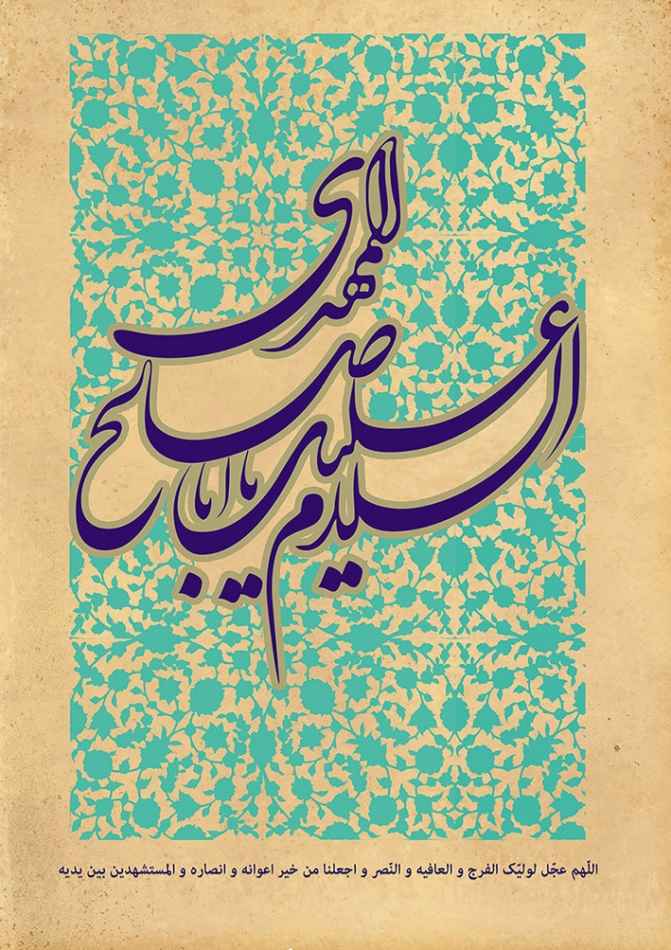 السلام علیک یا اباصالح المهدی
اللّهم عجّل لولیّک الفرج و العافیه و النّصر و اجعلنا من خیر اعوانه و انصاره و المستشهدین بین یدیه